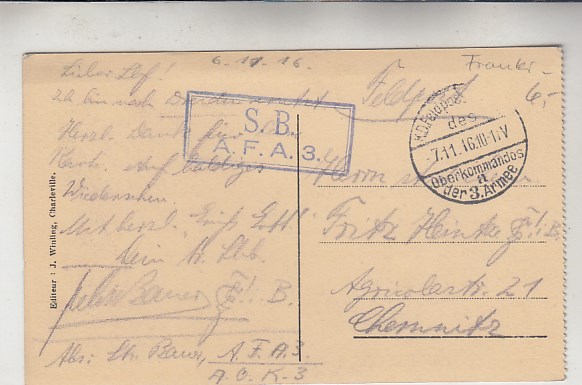 6.11.16.
Lieber Lbf!
Ich bin nach Dresden versetzt
Herzl. Dank für
Karte. Auf baldiges
Wiedersehen.
Mit herzl. "Grüß Gott!"
Dein tr. Lbb.
Bauer F!. B.
Abs: Bauer, A. F. A. 3.
A. O. K. 3
Editeur : J. Winling, Charleville.
S. B.
A. F. A. 3.
Feldpost
Franki-
6,-
K.D. Feldpost
des
-7.11.16.10-1.V
Oberkommandos
a
der 3. Armee
Herrn
Fritz Heinke F!. B.
Agricolastr. 21
Chemnitz